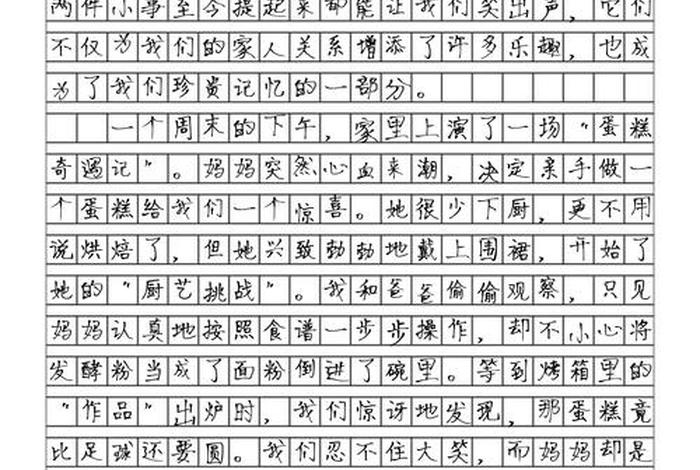 两件小事至今提起来都能让我们笑出声，它们
不仅为我们的家人关系增添了许多乐趣，也成
为了我们珍贵记忆的一部分。
一个周末的下午，家里上演了一场“蛋糕
奇遇记”。妈妈突然心血来潮，决定亲手做一
个蛋糕给我们一个惊喜。她很少下厨，更不用
说烘焙了，但她兴致勃勃地戴上围裙，开始了
她的“厨艺挑战”。我和爸爸偷偷观察，只见
妈妈认真地按照食谱一步步操作，却不小心将
发酵粉当成了面粉倒进了碗里。等到烤箱里的
“作品”出炉时，我们惊讶地发现，那蛋糕竟
比足球还要圆。我们忍不住大笑，而妈妈却是